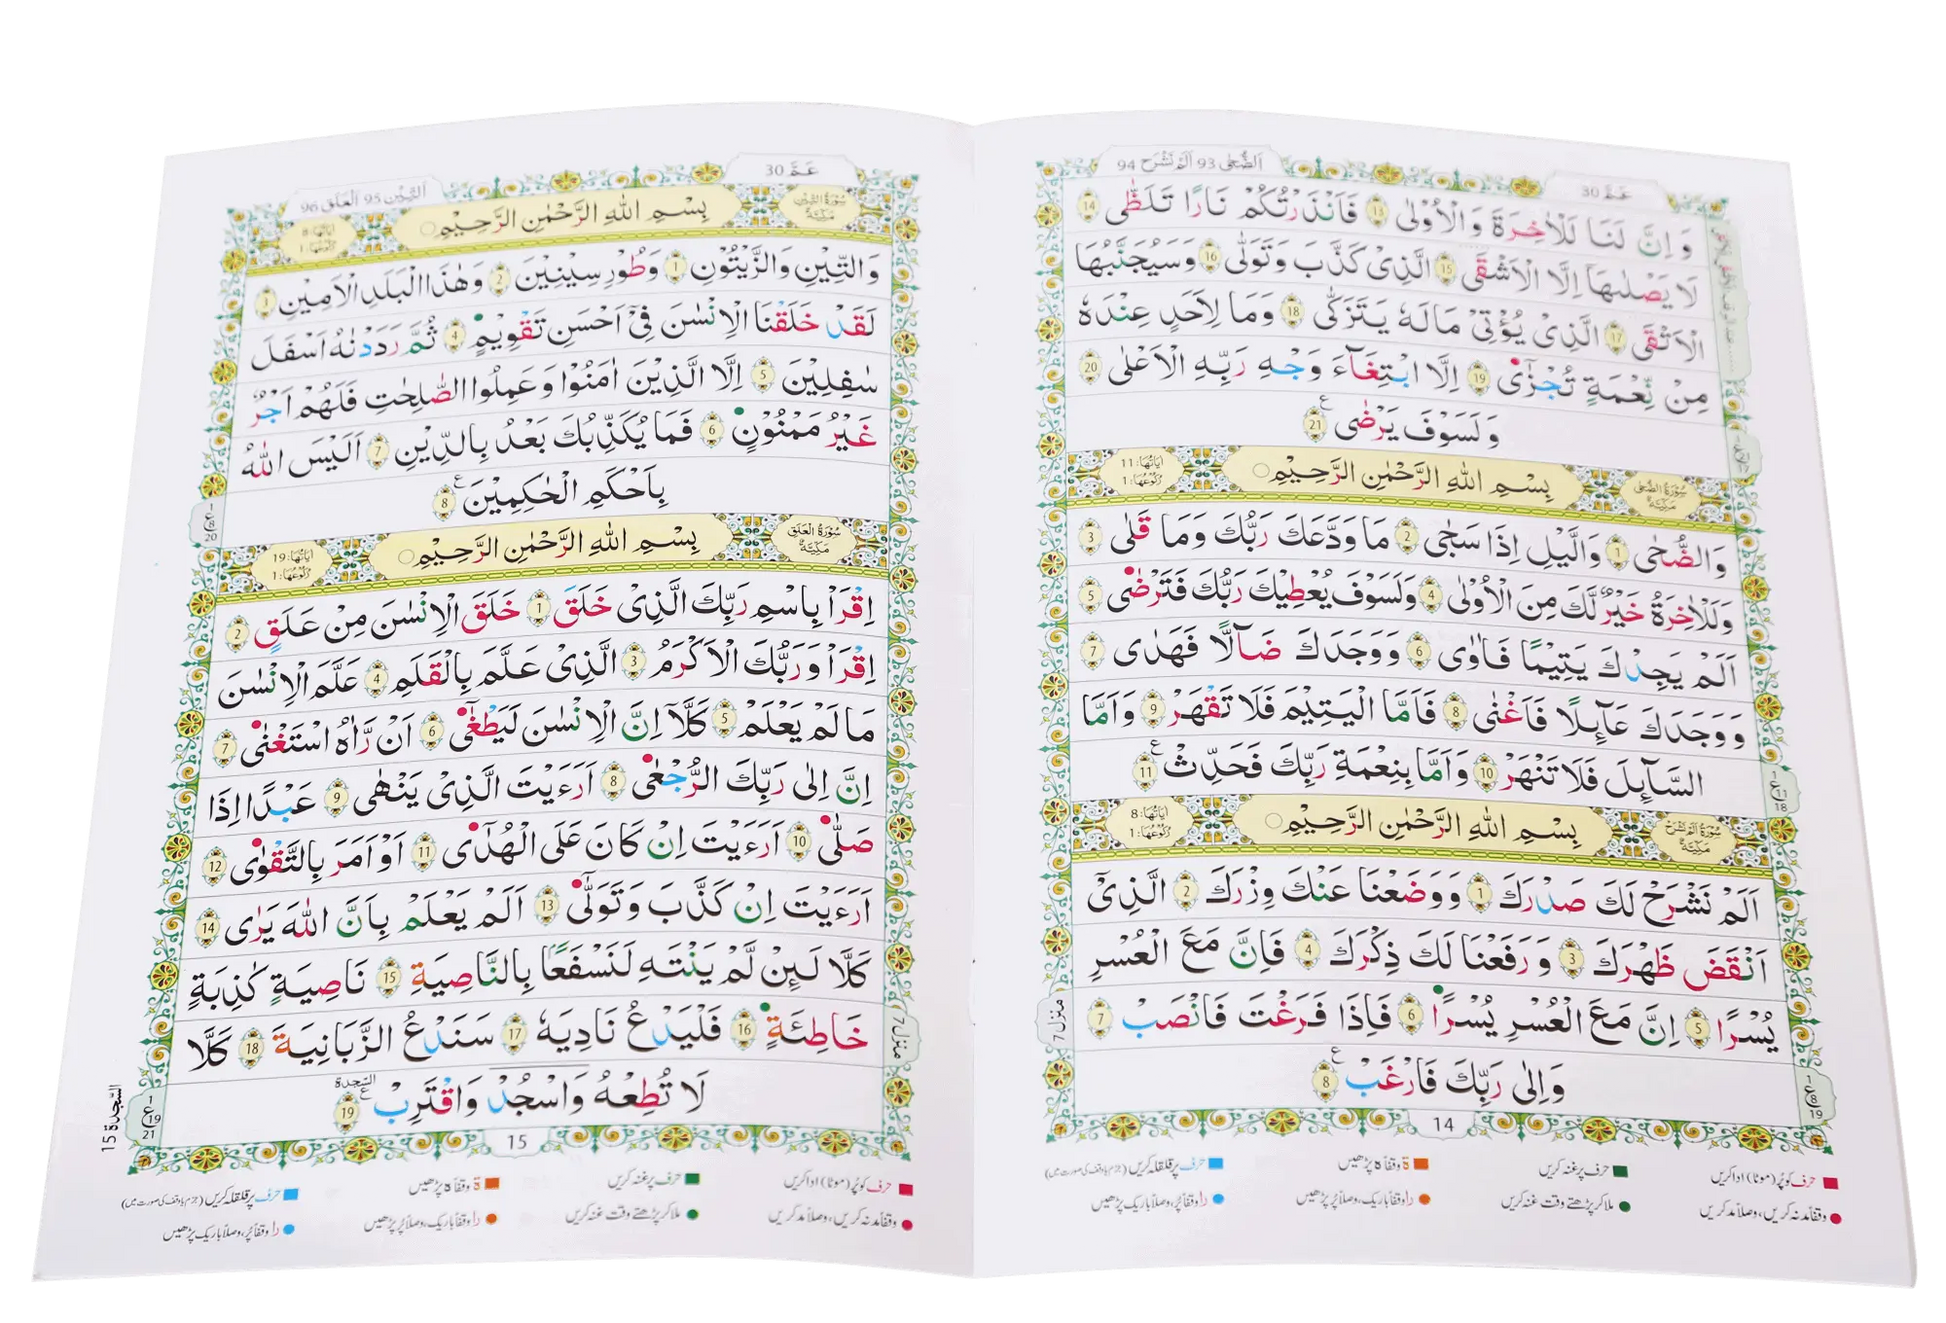 اَلضُّحٰى 93 اَلَمْ نَشْرَحْ 94
عَمَّ 30
وَ اِنَّ لَنَا لَلْاٰخِرَةَ وَ الْاُوْلٰى 13 فَاَنْذَرْتُكُمْ نَارًا تَلَظّٰى 14
لَا يَصْلٰىهَاۤ اِلَّا الْاَشْقَى 15 الَّذِىْ كَذَّبَ وَ تَوَلّٰى 16 وَ سَيُجَنَّبُهَا
الْاَتْقَى 17 الَّذِىْ يُؤْتِىْ مَالَهٗ يَتَزَكّٰى 18 وَ مَا لِاَحَدٍ عِنْدَهٗ
مِنْ نِّعْمَةٍ تُجْزٰۤى 19 اِلَّا ابْتِغَآءَ وَجْهِ رَبِّهِ الْاَعْلٰى 20
وَ لَسَوْفَ يَرْضٰى 21
سُوْرَةُ الضُّحٰى مَكِّيَّةٌ
بِسْمِ اللّٰهِ الرَّحْمٰنِ الرَّحِيْمِ
اٰيَاتُهَا: 11
رُكُوْعُهَا: 1
وَ الضُّحٰى 1 وَ الَّيْلِ اِذَا سَجٰى 2 مَا وَدَّعَكَ رَبُّكَ وَ مَا قَلٰى 3
وَ لَلْاٰخِرَةُ خَيْرٌ لَّكَ مِنَ الْاُوْلٰى 4 وَ لَسَوْفَ يُعْطِيْكَ رَبُّكَ فَتَرْضٰى 5
اَلَمْ يَجِدْكَ يَتِيْمًا فَاٰوٰى 6 وَ وَجَدَكَ ضَآلًّا فَهَدٰى 7
وَ وَجَدَكَ عَآئِلًا فَاَغْنٰى 8 فَاَمَّا الْيَتِيْمَ فَلَا تَقْهَرْ 9 وَ اَمَّا
السَّآئِلَ فَلَا تَنْهَرْ 10 وَ اَمَّا بِنِعْمَةِ رَبِّكَ فَحَدِّثْ 11
سُوْرَةُ اَلَمْ نَشْرَحْ مَكِّيَّةٌ
بِسْمِ اللّٰهِ الرَّحْمٰنِ الرَّحِيْمِ
اٰيَاتُهَا: 8
رُكُوْعُهَا: 1
اَلَمْ نَشْرَحْ لَكَ صَدْرَكَ 1 وَ وَضَعْنَا عَنْكَ وِزْرَكَ 2 الَّذِىْۤ
اَنْقَضَ ظَهْرَكَ 3 وَ رَفَعْنَا لَكَ ذِكْرَكَ 4 فَاِنَّ مَعَ الْعُسْرِ
يُسْرًا 5 اِنَّ مَعَ الْعُسْرِ يُسْرًا 6 فَاِذَا فَرَغْتَ فَانْصَبْ 7
وَ اِلٰى رَبِّكَ فَارْغَبْ 8
منزل 7
14
حرف کو پُر (موٹا) ادا کریں
حرف پر غنہ کریں
ة وقفاً ہ پڑھیں
حرف پر قلقلہ کریں (جزم یا وقف کی صورت میں)
وقفاً مد نہ کریں، وصلاً مد کریں
ملا کر پڑھتے وقت غنہ کریں
را وقفاً باریک، وصلاً پُر پڑھیں
را وقفاً پُر، وصلاً باریک پڑھیں
اَلتِّيْن 95 اَلْعَلَق 96
عَمَّ 30
سُوْرَةُ التِّيْنِ مَكِّيَّةٌ
بِسْمِ اللّٰهِ الرَّحْمٰنِ الرَّحِيْمِ
اٰيَاتُهَا: 8
رُكُوْعُهَا: 1
وَ التِّيْنِ وَ الزَّيْتُوْنِ 1 وَ طُوْرِ سِيْنِيْنَ 2 وَ هٰذَا الْبَلَدِ الْاَمِيْنِ 3
لَقَدْ خَلَقْنَا الْاِنْسٰنَ فِىْۤ اَحْسَنِ تَقْوِيْمٍ 4 ثُمَّ رَدَدْنٰهُ اَسْفَلَ
سٰفِلِيْنَ 5 اِلَّا الَّذِيْنَ اٰمَنُوْا وَ عَمِلُوا الصّٰلِحٰتِ فَلَهُمْ اَجْرٌ
غَيْرُ مَمْنُوْنٍ 6 فَمَا يُكَذِّبُكَ بَعْدُ بِالدِّيْنِ 7 اَلَيْسَ اللّٰهُ
بِاَحْكَمِ الْحٰكِمِيْنَ 8
سُوْرَةُ الْعَلَقِ مَكِّيَّةٌ
بِسْمِ اللّٰهِ الرَّحْمٰنِ الرَّحِيْمِ
اٰيَاتُهَا: 19
رُكُوْعُهَا: 1
اِقْرَاْ بِاسْمِ رَبِّكَ الَّذِىْ خَلَقَ 1 خَلَقَ الْاِنْسٰنَ مِنْ عَلَقٍ 2
اِقْرَاْ وَ رَبُّكَ الْاَكْرَمُ 3 الَّذِىْ عَلَّمَ بِالْقَلَمِ 4 عَلَّمَ الْاِنْسٰنَ
مَا لَمْ يَعْلَمْ 5 كَلَّاۤ اِنَّ الْاِنْسٰنَ لَيَطْغٰۤى 6 اَنْ رَّاٰهُ اسْتَغْنٰى 7
اِنَّ اِلٰى رَبِّكَ الرُّجْعٰى 8 اَرَءَيْتَ الَّذِىْ يَنْهٰى 9 عَبْدًا اِذَا
صَلّٰى 10 اَرَءَيْتَ اِنْ كَانَ عَلَى الْهُدٰۤى 11 اَوْ اَمَرَ بِالتَّقْوٰى 12
اَرَءَيْتَ اِنْ كَذَّبَ وَ تَوَلّٰى 13 اَلَمْ يَعْلَمْ بِاَنَّ اللّٰهَ يَرٰى 14
كَلَّا لَئِنْ لَّمْ يَنْتَهِ لَنَسْفَعًۢا بِالنَّاصِيَةِ 15 نَاصِيَةٍ كٰذِبَةٍ
خَاطِئَةٍ 16 فَلْيَدْعُ نَادِيَهٗ 17 سَنَدْعُ الزَّبَانِيَةَ 18 كَلَّا
لَا تُطِعْهُ وَ اسْجُدْ وَ اقْتَرِبْ 19 السجدة
السجدة 15
منزل 7
15
حرف کو پُر (موٹا) ادا کریں
حرف پر غنہ کریں
ة وقفاً ہ پڑھیں
حرف پر قلقلہ کریں (جزم یا وقف کی صورت میں)
وقفاً مد نہ کریں، وصلاً مد کریں
ملا کر پڑھتے وقت غنہ کریں
را وقفاً باریک، وصلاً پُر پڑھیں
را وقفاً پُر، وصلاً باریک پڑھیں